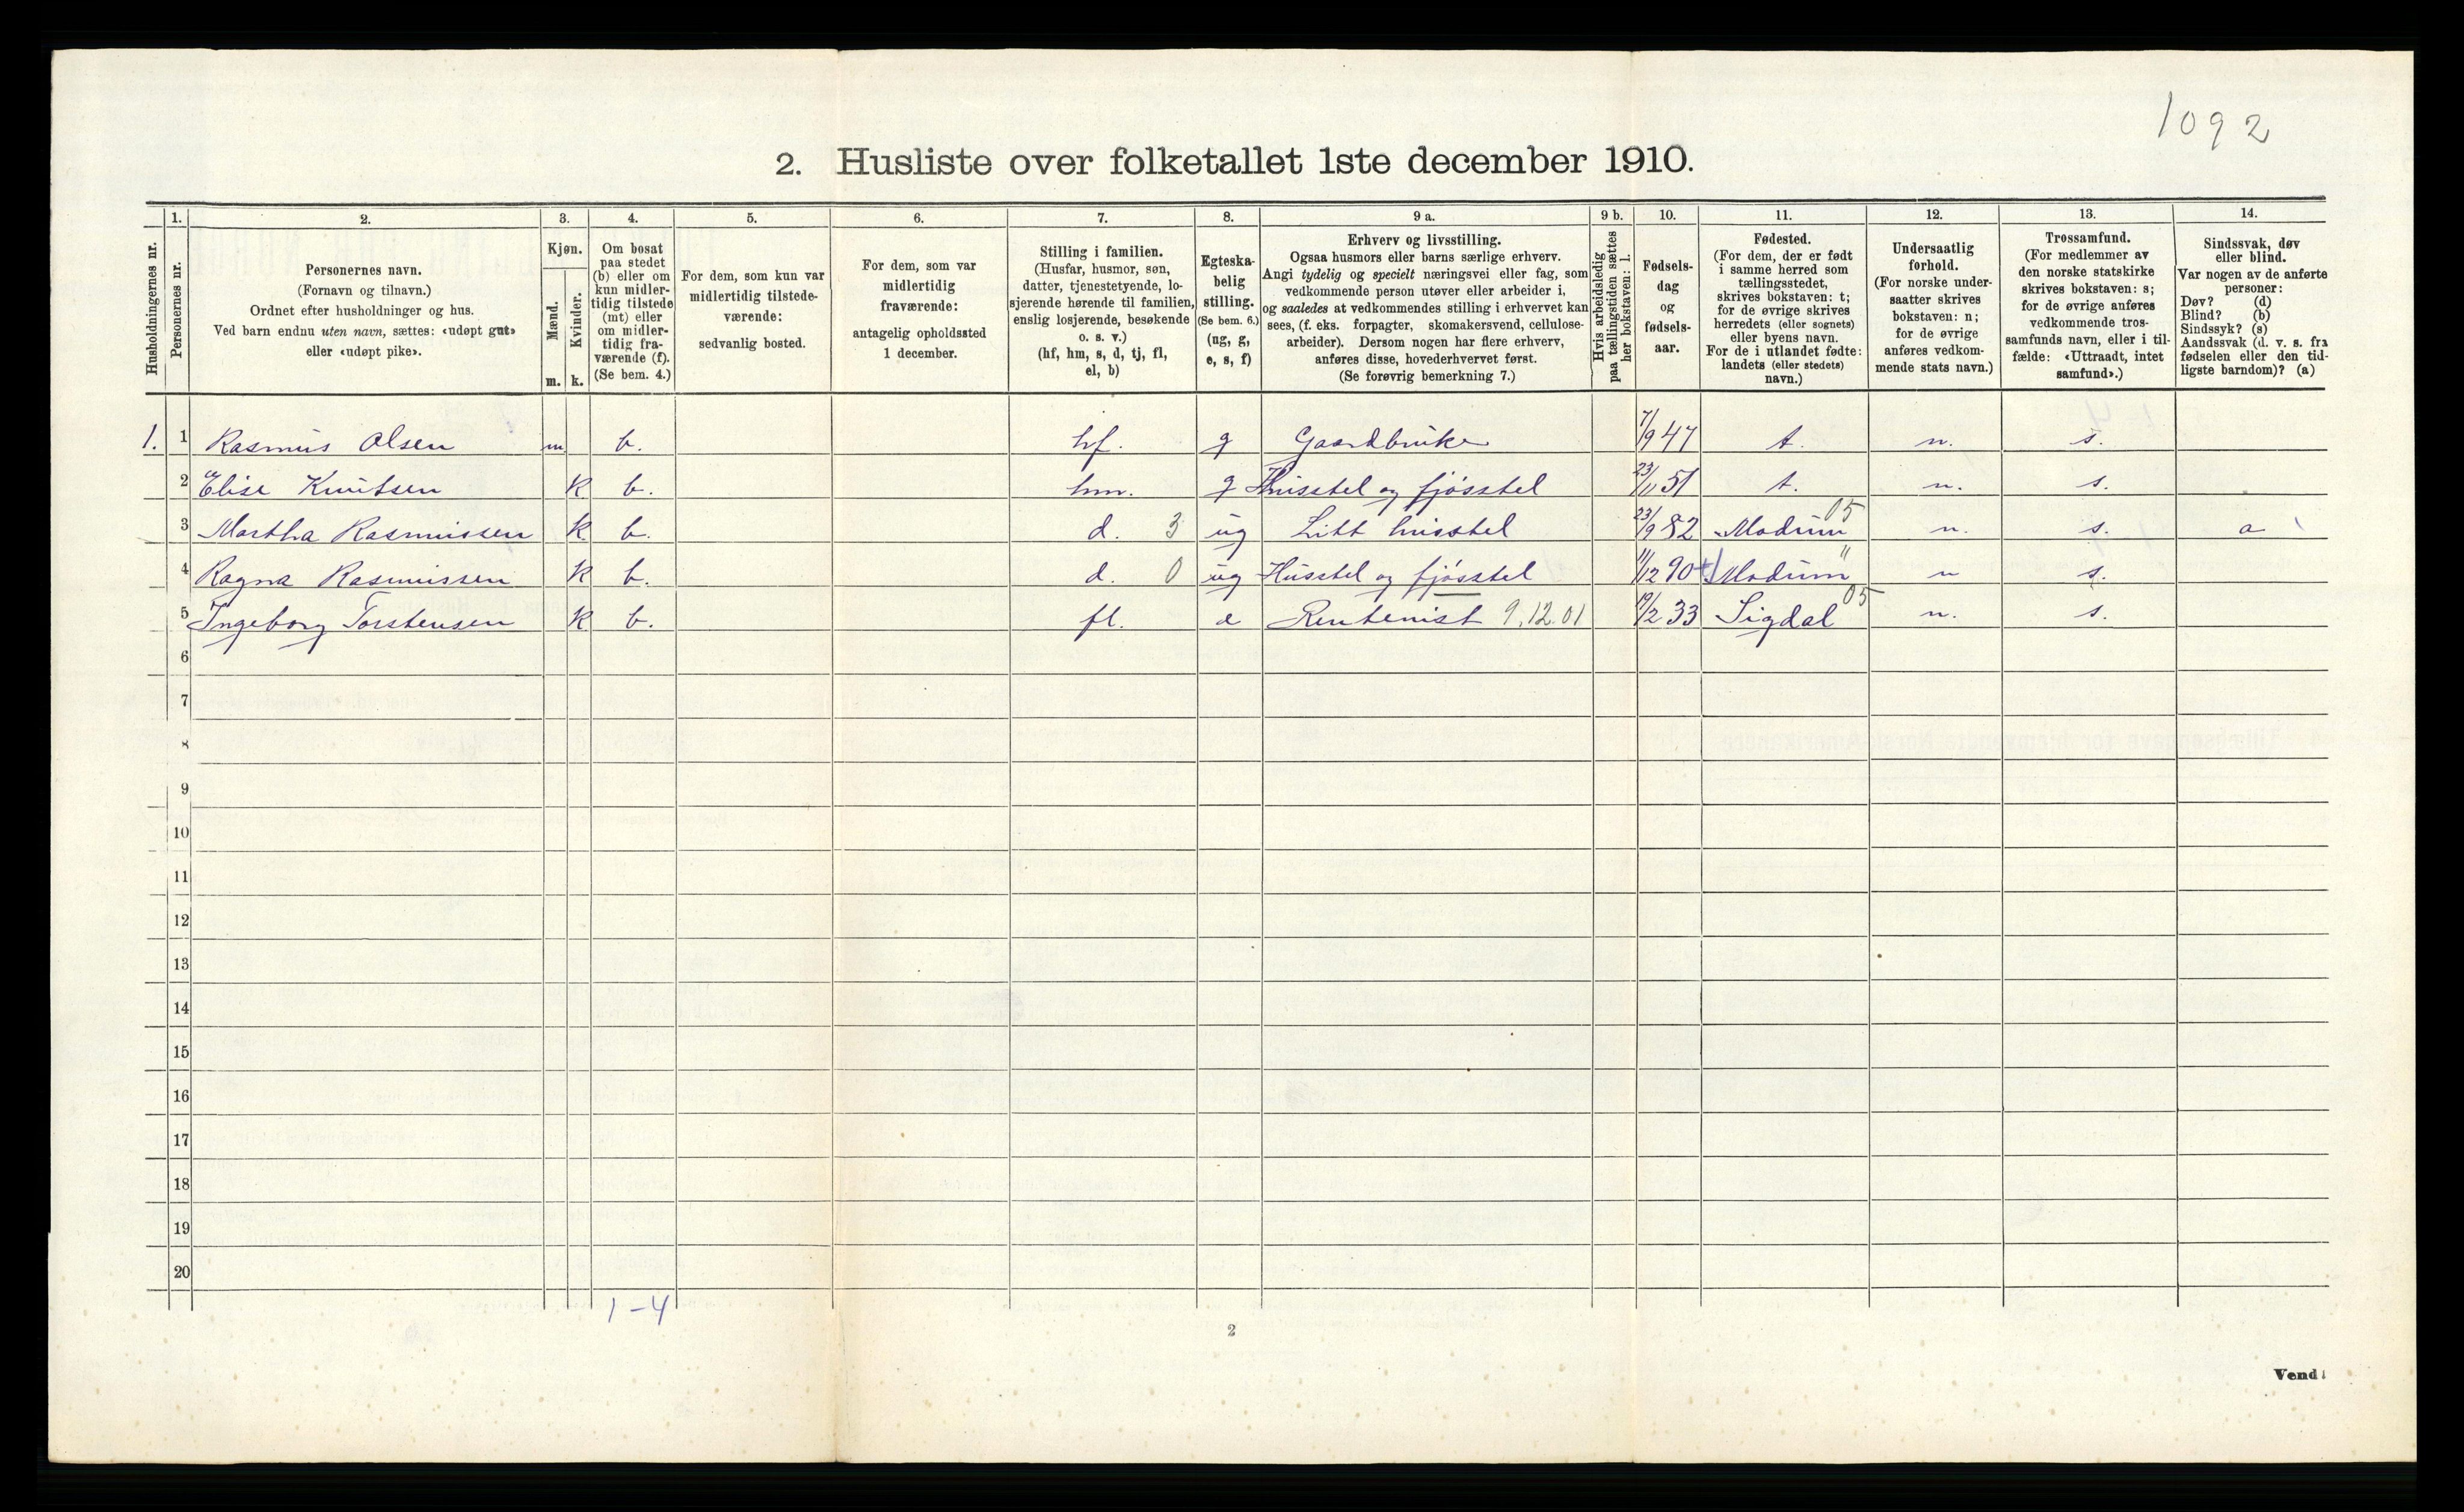 1092
2. Husliste over folketallet 1ste december 1910.
Husholdningernes nr.
1. Personernes nr.
2. Personernes navn.
(Fornavn og tilnavn.)
Ordnet efter husholdninger og hus.
Ved barn endnu uten navn, sættes: «udøpt gut»
eller «udøpt pike».
3. Kjøn.
Mænd. m.
Kvinder. k.
4. Om bosat
paa stedet
(b) eller om
kun midler-
tidig tilstede
(mt) eller
om midler-
tidig fra-
værende (f).
(Se bem. 4.)
5. For dem, som kun var
midlertidig tilstede-
værende:
sedvanlig bosted.
6. For dem, som var
midlertidig
fraværende:
antagelig opholdssted
1 december.
7. Stilling i familien.
(Husfar, husmor, søn,
datter, tjenestetyende, lo-
sjerende hørende til familien,
enslig losjerende, besøkende
o. s. v.)
(hf, hm, s, d, tj, fl,
el, b)
8. Egteska-
belig
stilling.
(Se bem. 6.)
(ug, g,
e, s, f)
9 a. Erhverv og livsstilling.
Ogsaa husmors eller barns særlige erhverv.
Angi tydelig og specielt næringsvei eller fag, som
vedkommende person utøver eller arbeider i,
og saaledes at vedkommendes stilling i erhvervet kan
sees, (f. eks. forpagter, skomakersvend, cellulose-
arbeider). Dersom nogen har flere erhverv,
anføres disse, hovederhvervet først.
(Se forøvrig bemerkning 7.)
9 b. Hvis arbeidsledig
paa tællingstiden sættes
her bokstaven: l.
10. Fødsels-
dag
og
fødsels-
aar.
11. Fødested.
(For dem, der er født
i samme herred som
tællingsstedet,
skrives bokstaven: t;
for de øvrige skrives
herredets (eller sognets)
eller byens navn.
For de i utlandet fødte:
landets (eller stedets)
navn.)
12. Undersaatlig
forhold.
(For norske under-
saatter skrives
bokstaven: n;
for de øvrige
anføres vedkom-
mende stats navn.)
13. Trossamfund.
(For medlemmer av
den norske statskirke
skrives bokstaven: s;
for de øvrige anføres
vedkommende tros-
samfunds navn, eller i til-
fælde: «Uttraadt, intet
samfund».)
14. Sindssvak, døv
eller blind.
Var nogen av de anførte
personer:
Døv? (d)
Blind? (b)
Sindssyk? (s)
Aandssvak (d. v. s. fra
fødselen eller den tid-
ligste barndom)? (a)
1. 1 Rasmus Olsen m b. hf. g Gaardbruker 7/9 47 t. n. s.
2 Elise Knutsen k b. hm. g Husstel og fjösstel 23/11 51 t. n. s.
3 Martha Rasmussen k b. d. 3 ug Litt husstel 23/9 82 Modum 05 n. s. a
4 Ragna Rasmussen k b. d. 0 ug Husstel og fjösstel 11/12 90 Modum " n s.
5 Ingeborg Torstensen k b. fl. e Rentenist 9.12.01 19/2 33 Sigdal 05 n. s.
6
7
8
9
10
11
12
13
14
15
16
17
18
19
20
1-4
2
Vend!